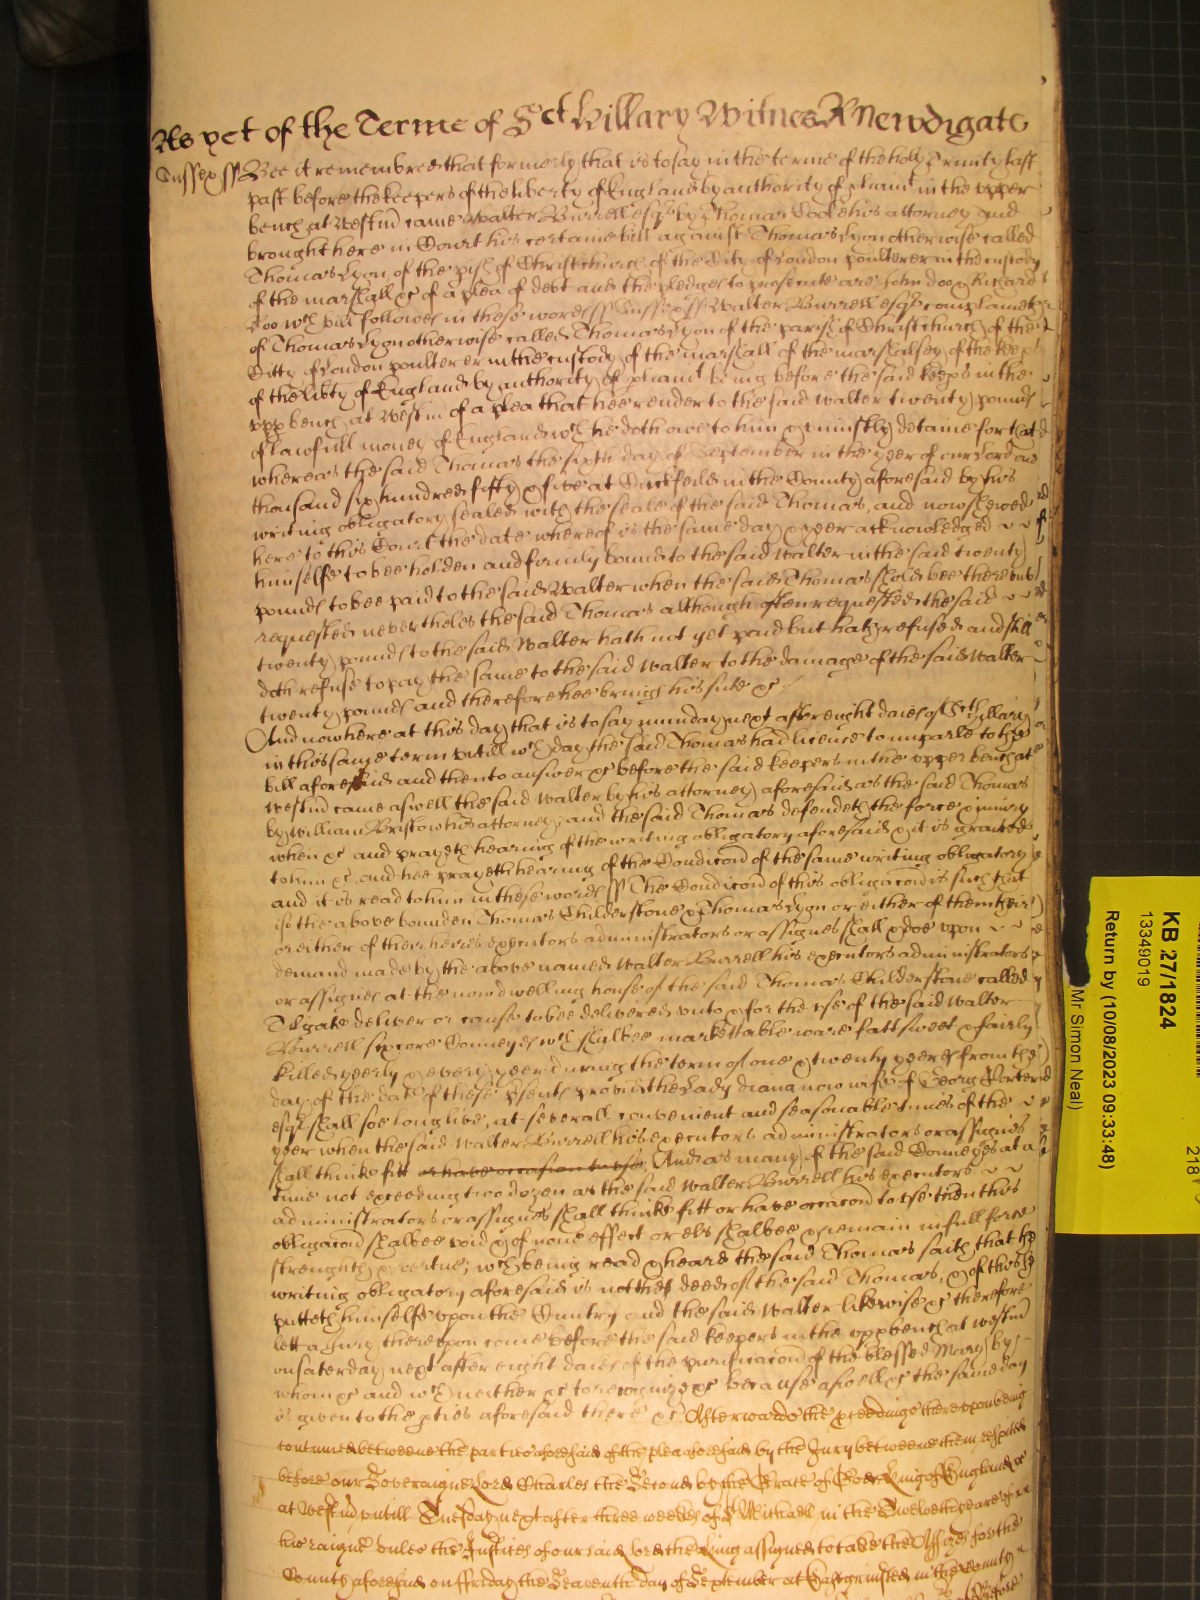 As yet of the Terme of Sct Hillary Witnes R Newdigate
Sussex ss Bee it remembred that formerly that is to say in the terme of the holy Trinity last
past before the keepers of the liberty of England by authority of pliamt in the upper
bench at Westm came Walter Burrell esqr by Thomas Cooke his attorney and
brought here in Court his certaine bill against Thomas Lyon otherwise called
Thomas Lyon of the pish of Christchurch of the City of London poulterer in the custody
of the marshall &c of a plea of debt and the pledges to prosecute are John Doo & Richard
Roo wch bill followes in these words ss Sussex ss Walter Burrell esqr complaineth
of Thomas Lyon otherwise called Thomas Lyon of the parish of Christchurch of the
Citty of London poulterer in the custody of the marshall of the marshalsey of the keeps
of the libty of England by authority of pliamt being before the said keeps in the
upp bench at Westm of a plea that hee render to the said Walter twenty pounds
of lawfull money of England wch he doth owe to him & uniustly detaine for that
whereas the said Thomas the sixth day of September in the yeer of our Lord one
thousand six hundred fifty & five at Cuckfeild in the County aforesaid by his
writing obligatory sealed with the seale of the said Thomas, and now shewed
here to this Court the date whereof is the same day & yeer acknowledged
himselfe to bee holden and firmly bound to the said Walter in the said twenty
pounds to bee paid to the said Walter when the said Thomas shold bee thereunto
requested neverthelės the said Thomas although often requested the said
twenty pounds to the said Walter hath not yet paid but hath refused and still
doth refuse to pay the same to the said Walter to the damage of the said Walter
twenty pounds and therefore hee brings his sute &c
And now here at this day that is to say munday next after eight daies of Sct Hillary
in this same term untill wch day the said Thomas had licence to imparle to the
bill aforesaid and then to answer &c before the said keepers in the upper bench at
Westm came aswell the said Walter by his attorney aforesaid as the said Thomas
by William Bristow his attorney; and the said Thomas defendeth the force & iniury
when &c and prayeth hearing of the writing obligatory aforesaid & it is granted
to him &c, and hee prayeth hearing of the Condicon of the same writing obligatory
and it is read to him in these words ss The Condicon of this obligacon is such that
if the above bounden Thomas Childerstone & Thomas Lyon or either of them their
or either of their heires executors administrators or assignes shall & doe upon
demand made by the above named Walter Burrell his executors administrators
or assignes at the now dwelling house of the said Thomas Childerstone called
Tilgate deliver or cause to bee delivered unto & for the use of the said Walter
Burrell sixscore Conneyes wch shalbee markettable ware fatt sweet & fairly
killed yeerly & every yeer during the term of one & twenty yeeres from the
day of the date of these psents provided the Lady diana now wife of Georg Porter
esqr shall soe long live, at severall convenient and seasonable times of the
yeer when the said Walter Burrell his executors administrators or assignes
shall thinke fitt or have occasion to use, And as many of the said Conneyes at a
time not exceeding two dozen as the said Walter Burrell his executors
administrators or assignes shall thinke fitt or have occacon to use then this
obligacon shalbee void & of none effect or els shalbee & remain in full force
strenghth & vertue; wch being read & heard the said Thomas saith that the
writing obligatory aforesaid is not the deed of the said Thomas, & of this he
putteth himselfe upon the Cuntry and the said Walter likewise &c therefore
lett a Jury thereupon come before the said keepers in the upp bench at westm
on saterday next after eight daies of the purificacon of the blessed Mary by
whom &c and wch neither &c to recognize &c because aswell &c the same day
is given to the pties aforesaid there &c Afterwards the pceedings thereupon being
continued betweene the parties aforesaid of the plea aforesaid by the Jury betweene them respited
before our Soveraigne Lord Charles the Second by the Grace of God King of England &c
at Westm untill Tuesday next after three weekes of St Michaell in the Twelveth yeare of
his raigne unles the Justices of our said lord the King assigned to take the Assizes for the
County aforesaid on Friday the Seaventh day of September at East grinsted in the County
before
KB 27/1824
13349019
Return by (10/08/2023 09:33:48)
Mr Simon Neal)